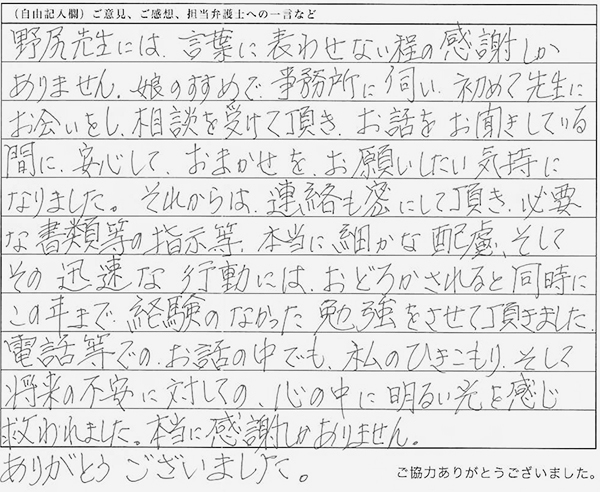 （自由記入欄）ご意見、ご感想、担当弁護士への一言など
野尻先生には、言葉に表わせない程の感謝しか
ありません。娘のすすめで、事務所に伺い、初めて先生に
お会いをし、相談を受けて頂き、お話をお聞きしている
間に、安心して、おまかせを、お願いしたい気持に
なりました。それからは、連絡も密にして頂き、必要
な書類等の指示等、本当に細かな配慮、そして
その迅速な行動には、おどろかされると同時に
この年まで、経験のなかった勉強をさせて頂きました。
電話等での、お話の中でも、私のひきこもり、そして
将来の不安に対しての、心の中に明るい光を感じ
救われました。本当に感謝しかありません。
ありがとうございました。
ご協力ありがとうございました。